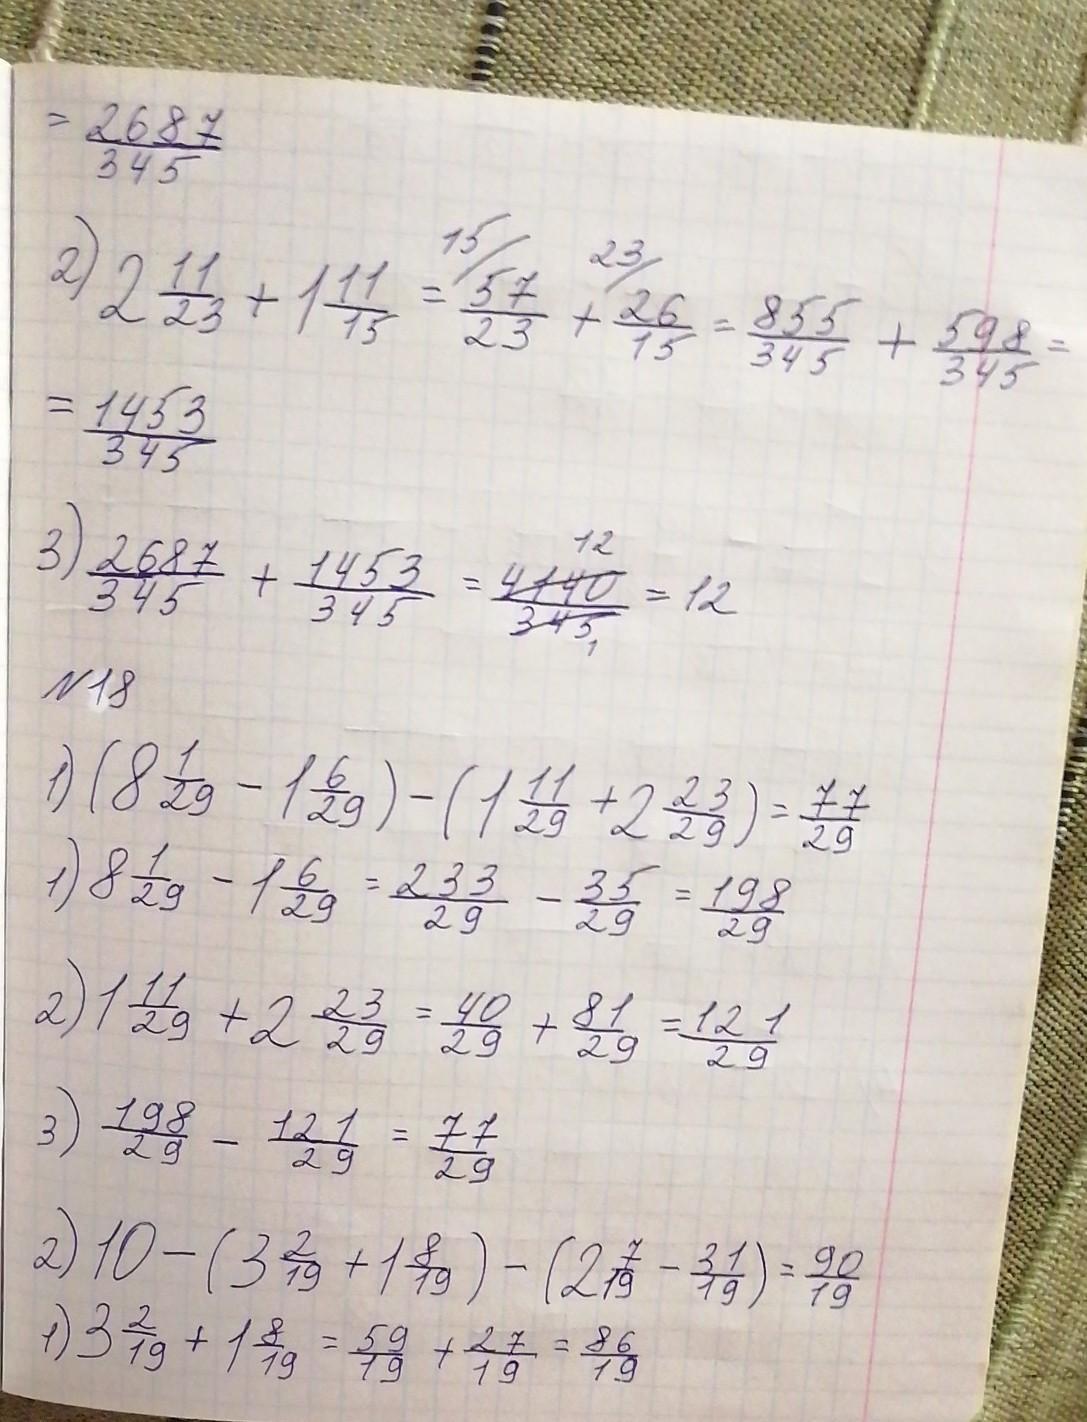 = 2687/345
15/ 23/
2) 2 11/23 + 1 11/15 = 57/23 + 26/15 = 855/345 + 598/345 =
= 1453/345
12
3) 2687/345 + 1453/345 = 4140/345 = 12
1
N18
1) (8 1/29 - 1 6/29) - (1 11/29 + 2 23/29) = 77/29
1) 8 1/29 - 1 6/29 = 233/29 - 35/29 = 198/29
2) 1 11/29 + 2 23/29 = 40/29 + 81/29 = 121/29
3) 198/29 - 121/29 = 77/29
2) 10 - (3 2/19 + 1 8/19) - (2 7/19 - 31/19) = 90/19
1) 3 2/19 + 1 8/19 = 59/19 + 27/19 = 86/19